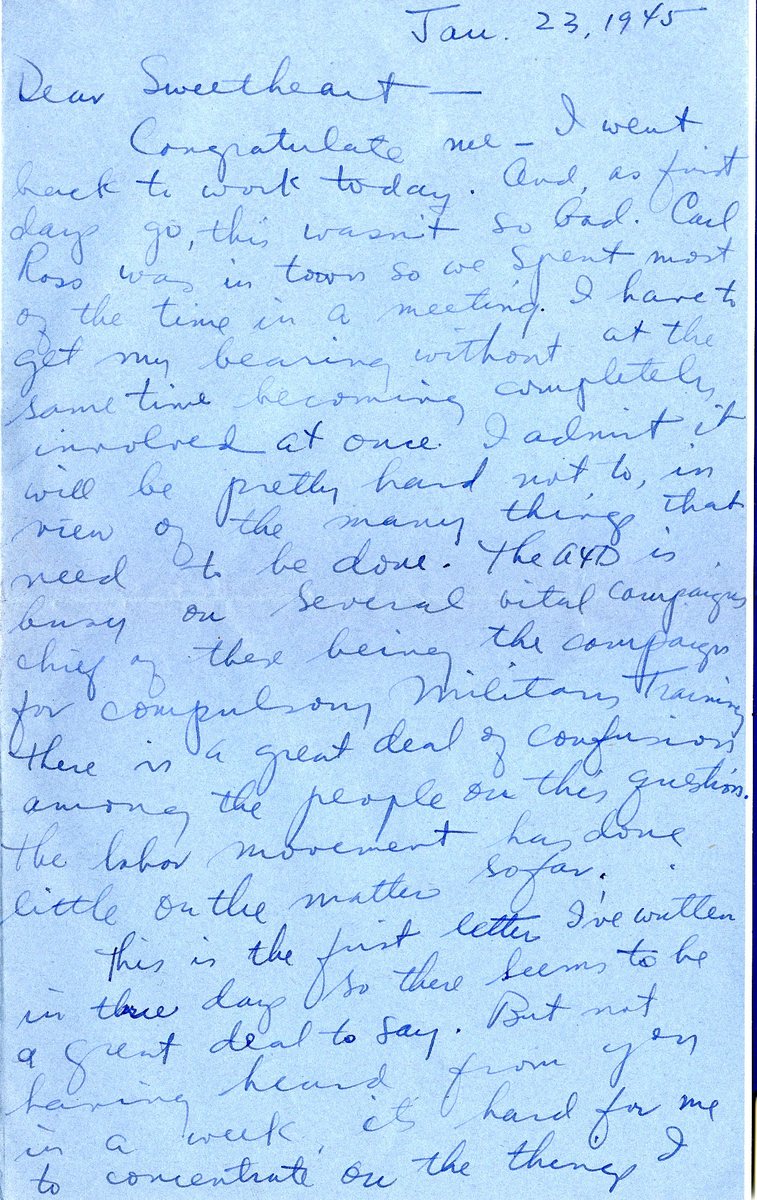 Jan. 23, 1945
Dear Sweetheart —
Congratulate me – I went
back to work today. And, as first
days go, this wasn't so bad. Carl
Ross was in town so we spent most
of the time in a meeting. I have to
get my bearing without at the
same time becoming completely
involved at once. I admit it
will be pretty hard not to, in
view of the many things that
need to be done. The AYD is
busy on several vital campaigns
chief of these being the campaign
for compulsory Military Training
there is a great deal of confusion
among the people on this question.
The labor movement has done
little on the matter so far.
This is the first letter I've written
in three days so there seems to be
a great deal to say. But not
having heard from you
in a week, it's hard for me
to concentrate on the things I